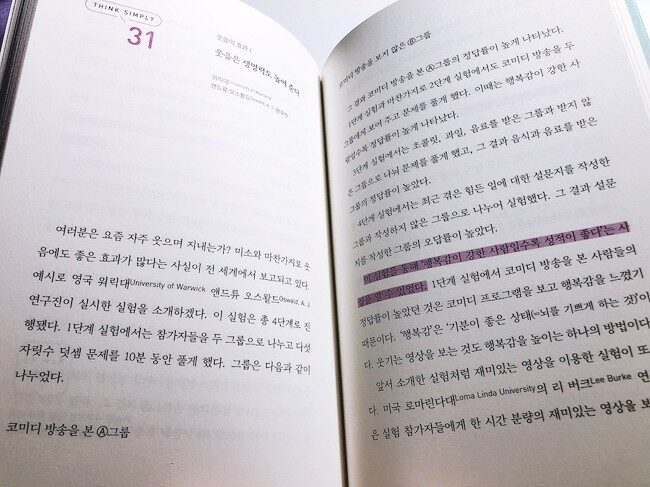 THINK SIMPLY
31
웃음의 효과 1
웃음은 생명력도 높여 준다
워릭대University of Warwick
앤드류 오스왈드Oswald, A. J. 연구진
여러분은 요즘 자주 웃으며 지내는가? 미소와 마찬가지로 웃
음에도 좋은 효과가 많다는 사실이 전 세계에서 보고되고 있다.
예시로 영국 워릭대University of Warwick 앤드류 오스왈드Oswald, A. J.
연구진이 실시한 실험을 소개하겠다. 이 실험은 총 4단계로 진
행됐다. 1단계 실험에서는 참가자들을 두 그룹으로 나누고 다섯
자릿수 덧셈 문제를 10분 동안 풀게 했다. 그룹은 다음과 같이
나누었다.
코미디 방송을 본 Ⓐ그룹
코미디 방송을 보지 않은 Ⓑ그룹
그 결과 코미디 방송을 본 Ⓐ그룹의 정답률이 높게 나타났다.
1단계 실험과 마찬가지로 2단계 실험에서도 코미디 방송을 두
그룹에게 보여 주고 문제를 풀게 했다. 이때는 행복감이 강한 사
람일수록 정답률이 높게 나타났다.
3단계 실험에서는 초콜릿, 과일, 음료를 받은 그룹과 받지 않
은 그룹으로 나눠 문제를 풀게 했고, 그 결과 음식과 음료를 받은
그룹의 정답률이 높았다.
4단계 실험에서는 최근 겪은 힘든 일에 대한 설문지를 작성한
그룹과 작성하지 않은 그룹으로 나누어 실험했다. 그 결과 설문
지를 작성한 그룹의 오답률이 높았다.
이 실험을 통해 '행복감이 강한 사람일수록 성적이 좋다'는 사
실을 알 수 있었다. 1단계 실험에서 코미디 방송을 본 사람들의
정답률이 높았던 것은 코미디 프로그램을 보고 행복감을 느꼈기
때문이다. '행복감'은 '기분이 좋은 상태(=뇌를 기쁘게 하는 것)'이
다. 웃기는 영상을 보는 것도 행복감을 높이는 하나의 방법이다
앞서 소개한 실험처럼 재미있는 영상을 이용한 실험이 또
다. 미국 로마린다대Loma Linda University의 리 버크Lee Burke 연
은 실험 참가자들에게 한 시간 분량의 재미있는 영상을 보